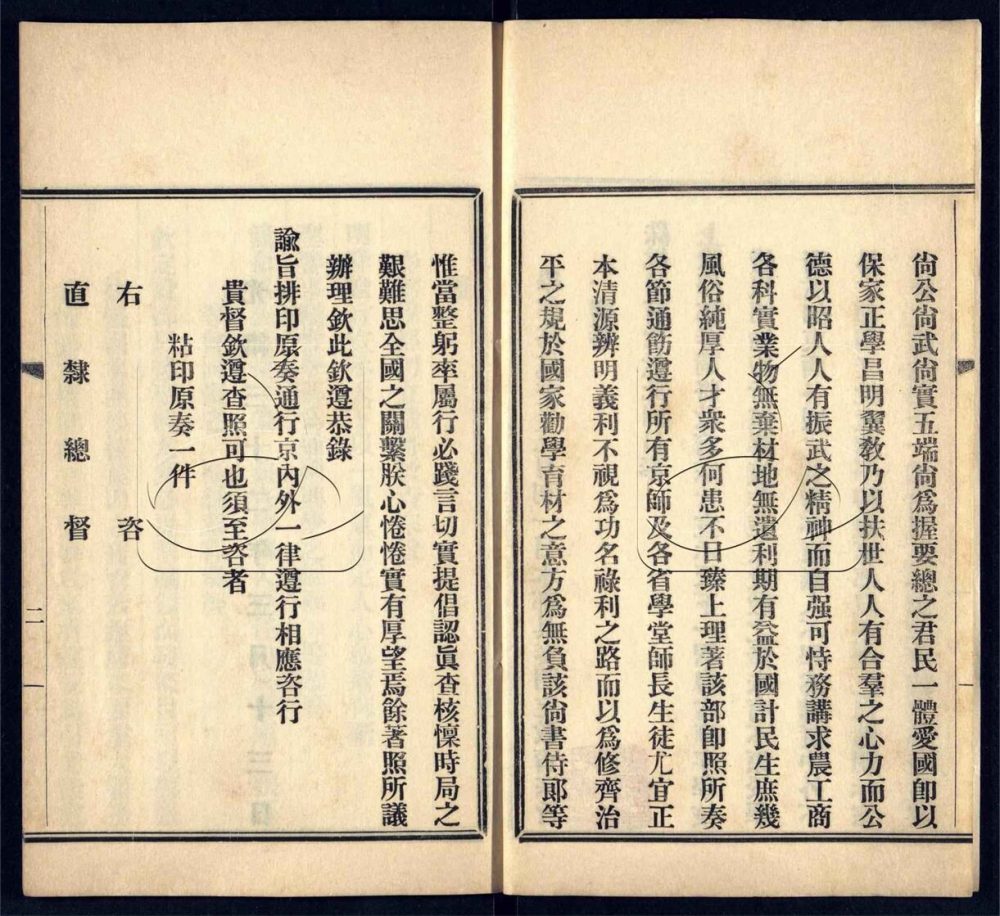 尙公尙武尙實五端尙爲握要總之君民一體愛國卽以
保家正學昌明翼敎乃以扶世人人有合羣之心力而公
德以昭人人有振武之精神而自强可恃務講求農工商
各科實業物無棄材地無遺利期有益於國計民生庶幾
風俗純厚人才衆多何患不日臻上理著該部卽照所奏
各節通飭遵行所有京師及各省學堂師長生徒尤宜正
本清源辨明義利不視爲功名祿利之路而以爲修齊治
平之規於國家勸學育材之意方爲無負該尙書侍郞等
一
惟當整躬率屬行必踐言切實提倡認眞查核懍時局之
艱難思全國之關繫朕心惓惓實有厚望焉餘著照所議
辦理欽此欽遵恭錄
諭旨排印原奏通行京內外一律遵行相應咨行
貴督欽遵查照可也須至咨者
粘印原奏一件
右咨
直隸總督
二
一